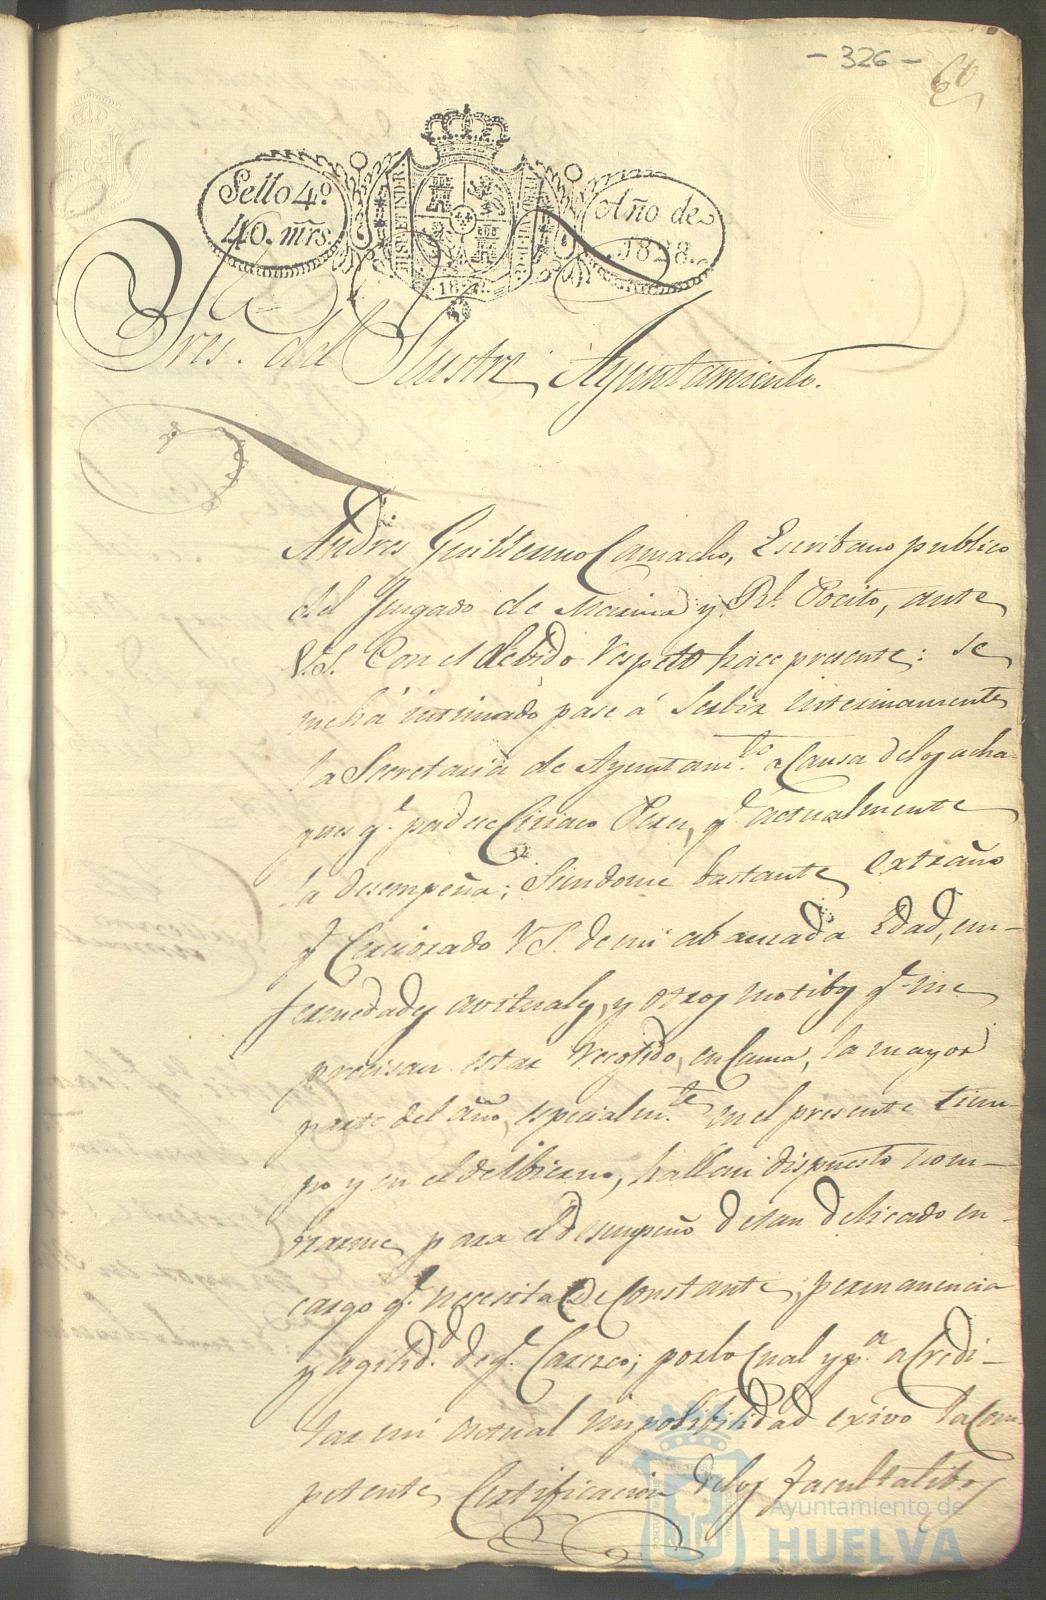 - 326 -
60
Sello 4º
40. mrs.
HISP. ET IND. R
Año de
1828.
Sres. del Ilustre Ayuntamiento.
Andres Guillermo Camacho, Escribano publico
del Juzgado de Marina y Rl. Pocito, ante
V.S. Con el debido respeto hace presente: se
me há intimado pase á Serbir interinamente
la Secretaria de Ayuntam.to a Causa delos acha-
ques q.e padece Ciriaco Perez, q.e actualmente
la desempeña; Siendome bastante extraño
q.e Cerciorado V.S. de mi abanzada Edad, en-
fermedades avituales, y otros motibos q.e me
precisan estar recogido, en Cama, la mayor
parte del año, especialm.te en el presente tiem-
po y en el de Ibierno, hallan dispuesto nom-
brarme para el desempeño de tan delicado en-
cargo q.e necesita de Constante permanencia
y agilid.d de q.e Carezco; por lo Cual y p.a aCredi-
tar mi actual imposibilidad exivo la Com-
petente Certificacion delos Facultatibos
Ayuntamiento de
HUELVA